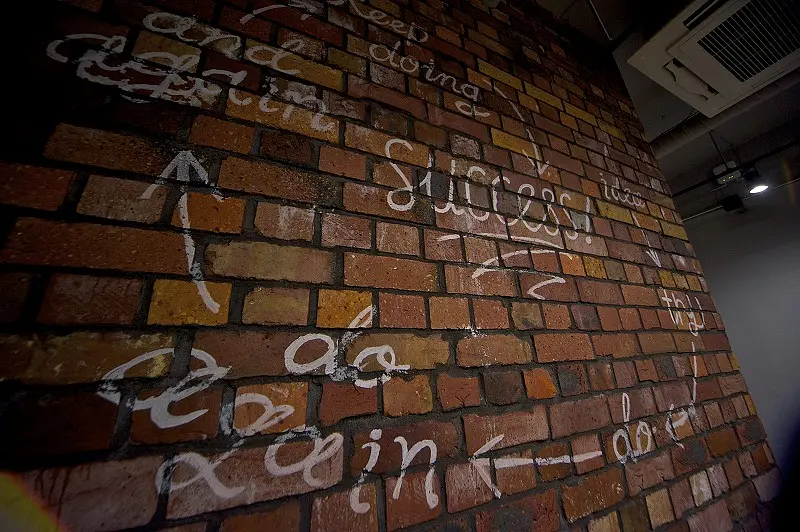 Keep
and doing
again
success!
idea
try
do
again
do